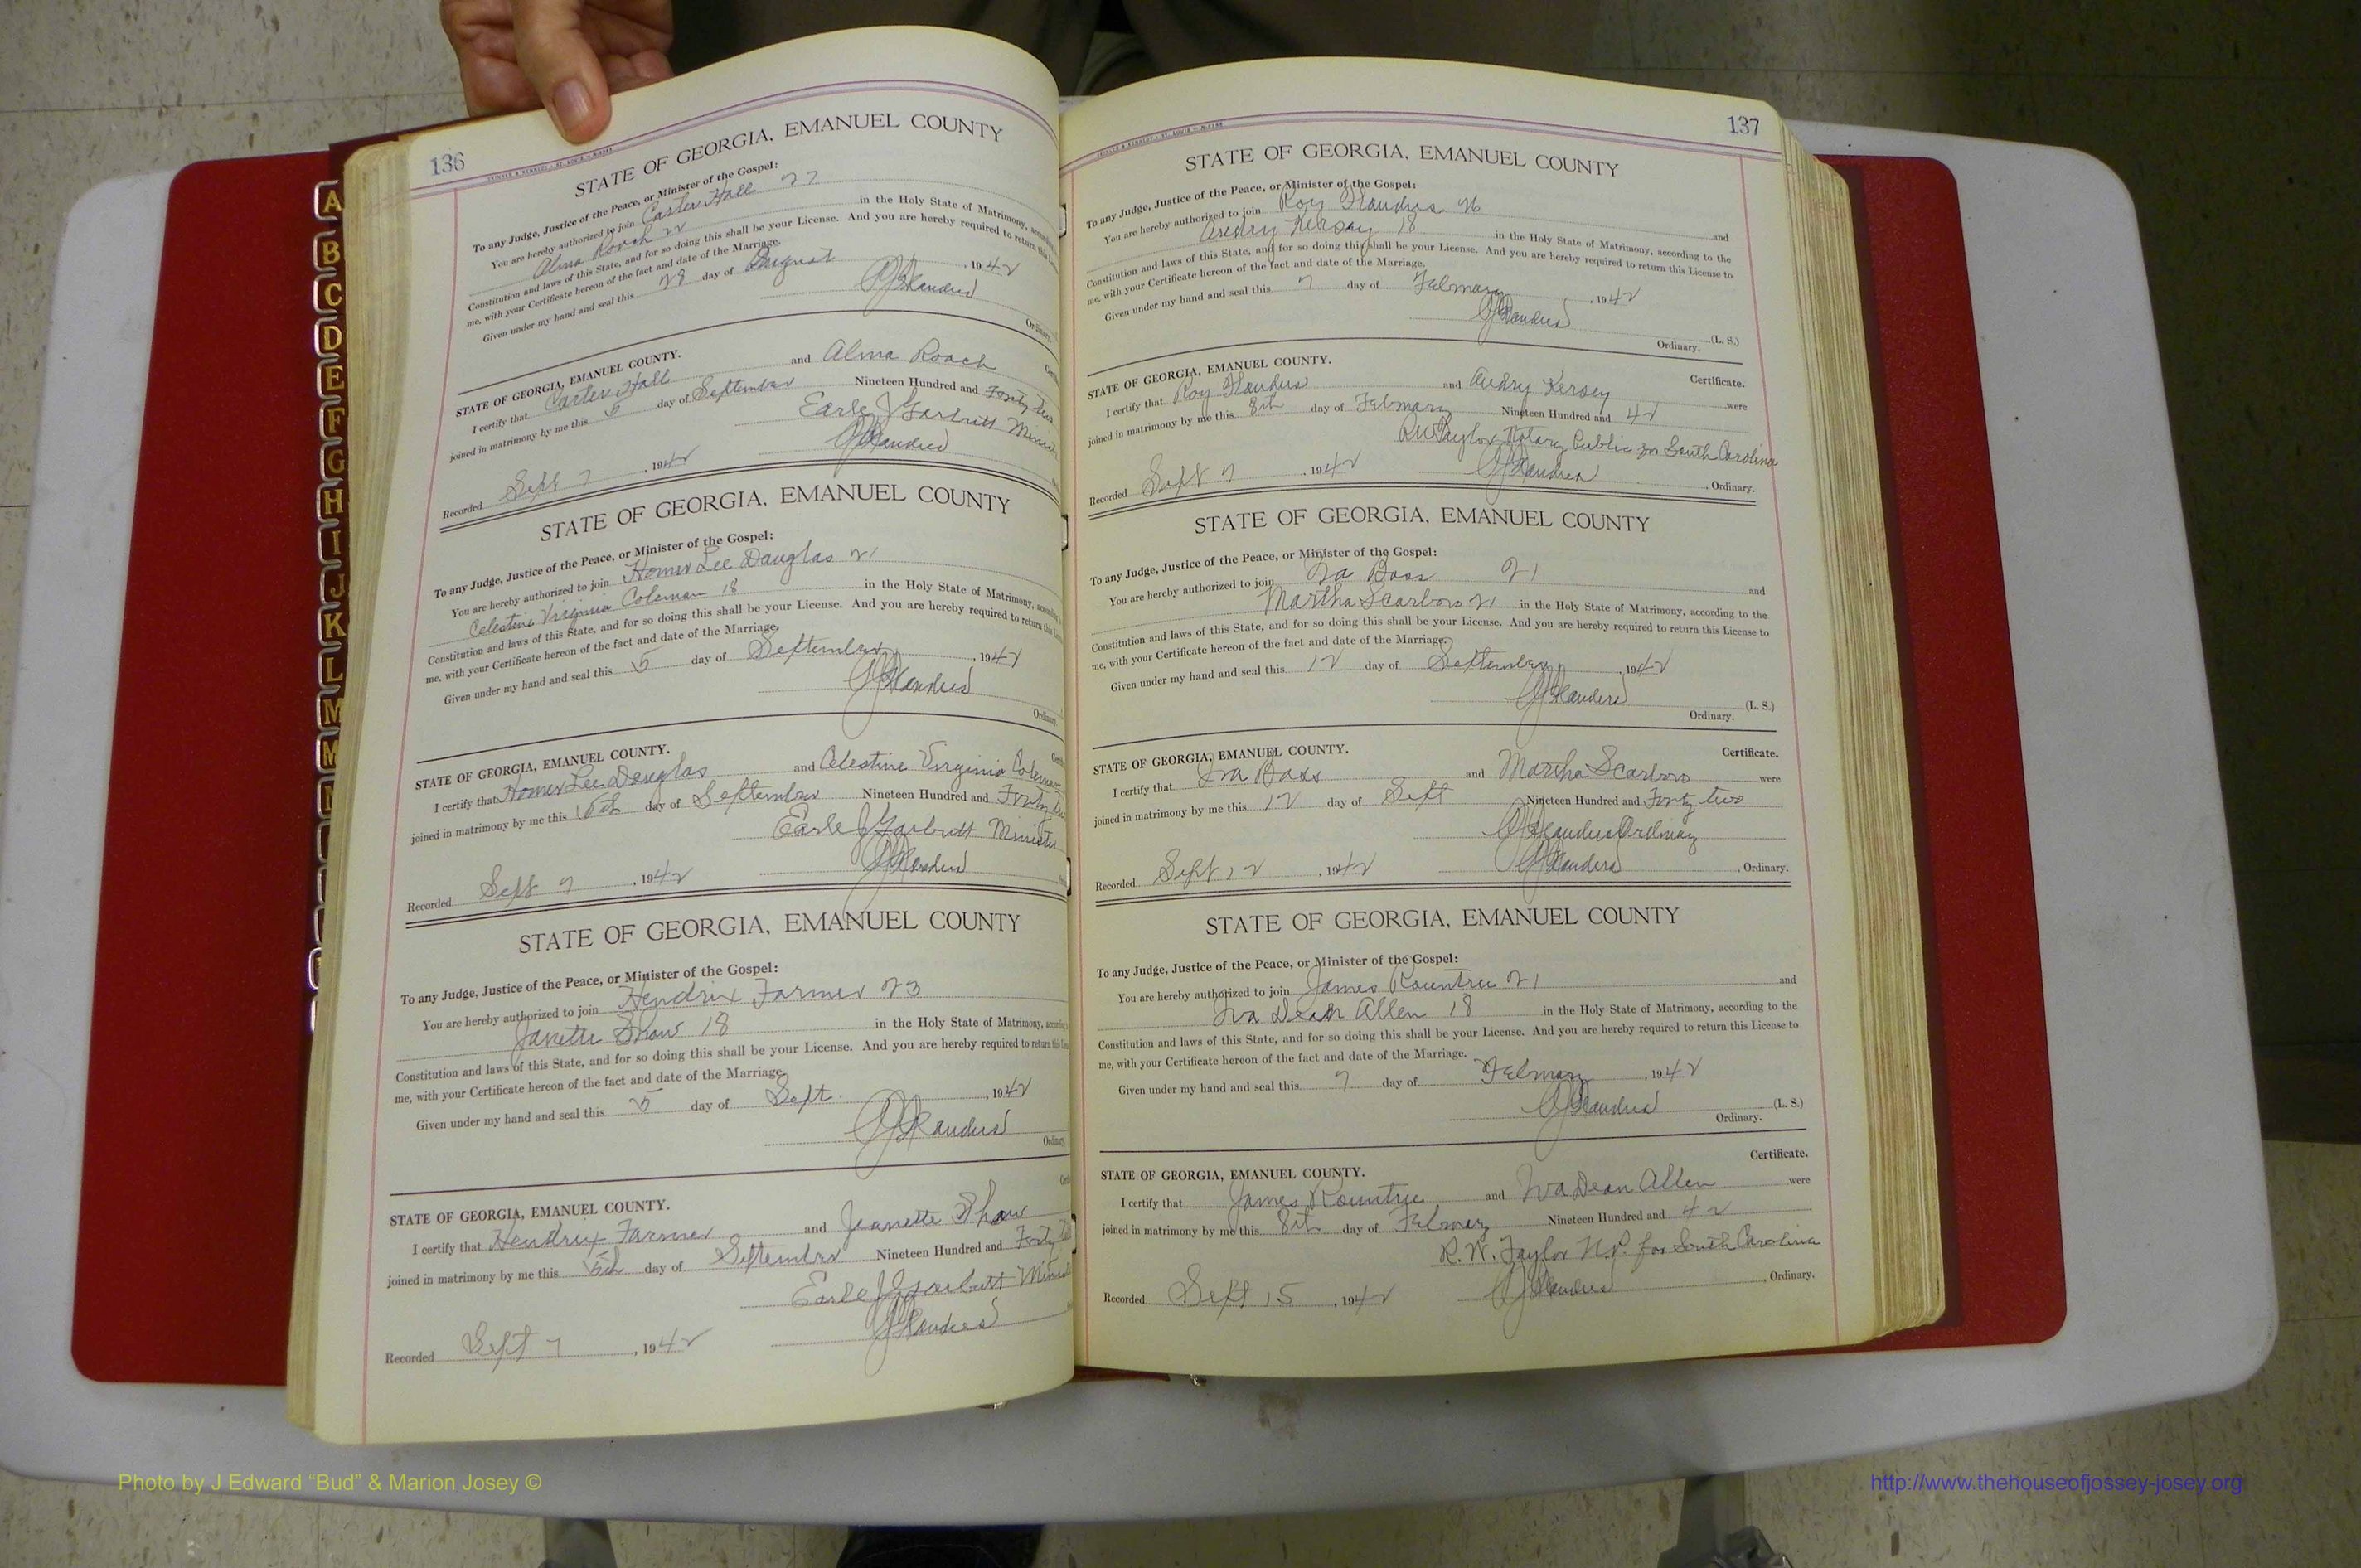 136
STATE OF GEORGIA, EMANUEL COUNTY
To any Judge, Justice of the Peace, or Minister of the Gospel:
You are hereby authorized to join Carter Hall 27
Alma Roach 22 in the Holy State of Matrimony,
Constitution and laws of this State, and for so doing this shall be your License. And you are hereby required to return this
me, with your Certificate hereon of the fact and date of the Marriage.
Given under my hand and seal this 28 day of August, 1942
Ordinary.
STATE OF GEORGIA, EMANUEL COUNTY.
I certify that Carter Hall and Alma Roach
joined in matrimony by me this 5 day of September Nineteen Hundred and Forty two
Earle J Garbutt
Recorded Sept 7, 1942
STATE OF GEORGIA, EMANUEL COUNTY
To any Judge, Justice of the Peace, or Minister of the Gospel:
You are hereby authorized to join Homer Lee Douglas 21
Celestine Virginia Coleman 18 in the Holy State of Matrimony,
Constitution and laws of this State, and for so doing this shall be your License. And you are hereby required to return this
me, with your Certificate hereon of the fact and date of the Marriage.
Given under my hand and seal this 5 day of September, 1942
Ordinary.
STATE OF GEORGIA, EMANUEL COUNTY.
I certify that Homer Lee Douglas and Celestine Virginia Coleman
joined in matrimony by me this 5th day of September Nineteen Hundred and
Earle J Garbutt Minister
Recorded Sept 7, 1942
STATE OF GEORGIA, EMANUEL COUNTY
To any Judge, Justice of the Peace, or Minister of the Gospel:
You are hereby authorized to join Hendrix Farmer 23
Janette Shaw 18 in the Holy State of Matrimony,
Constitution and laws of this State, and for so doing this shall be your License. And you are hereby required to return this
me, with your Certificate hereon of the fact and date of the Marriage.
Given under my hand and seal this 5 day of Sept., 1942
Ordinary.
STATE OF GEORGIA, EMANUEL COUNTY.
I certify that Hendrix Farmer and Jeanette Shaw
joined in matrimony by me this 5th day of September Nineteen Hundred and
Earle J Garbutt
Recorded Sept 7, 1942
137
STATE OF GEORGIA, EMANUEL COUNTY
To any Judge, Justice of the Peace, or Minister of the Gospel:
You are hereby authorized to join Roy Flanders 26 and
Audry Kersey 18 in the Holy State of Matrimony, according to the
Constitution and laws of this State, and for so doing this shall be your License. And you are hereby required to return this License to
me, with your Certificate hereon of the fact and date of the Marriage.
Given under my hand and seal this 7 day of February, 1942
(L. S.)
Ordinary.
STATE OF GEORGIA, EMANUEL COUNTY. Certificate.
I certify that Roy Flanders and Audry Kersey were
joined in matrimony by me this 8th day of February Nineteen Hundred and 42
R W Taylor Notary Public for South Carolina
Recorded Sept 7, 1942 Ordinary.
STATE OF GEORGIA, EMANUEL COUNTY
To any Judge, Justice of the Peace, or Minister of the Gospel:
You are hereby authorized to join Ira Bass 21 and
Martha Scarboro 21 in the Holy State of Matrimony, according to the
Constitution and laws of this State, and for so doing this shall be your License. And you are hereby required to return this License to
me, with your Certificate hereon of the fact and date of the Marriage.
Given under my hand and seal this 12 day of September, 1942
(L. S.)
Ordinary.
STATE OF GEORGIA, EMANUEL COUNTY. Certificate.
I certify that Ira Bass and Martha Scarboro were
joined in matrimony by me this 12 day of Sept Nineteen Hundred and Forty two
Flanders Ordinary
Recorded Sept 12, 1942 Ordinary.
STATE OF GEORGIA, EMANUEL COUNTY
To any Judge, Justice of the Peace, or Minister of the Gospel:
You are hereby authorized to join James Rountree 21 and
Iva Dean Allen 18 in the Holy State of Matrimony, according to the
Constitution and laws of this State, and for so doing this shall be your License. And you are hereby required to return this License to
me, with your Certificate hereon of the fact and date of the Marriage.
Given under my hand and seal this 7 day of February, 1942
(L. S.)
Ordinary.
STATE OF GEORGIA, EMANUEL COUNTY. Certificate.
I certify that James Rountree and Iva Dean Allen were
joined in matrimony by me this 8th day of Nineteen Hundred and 42
R. W. Taylor N.P. for South Carolina
Recorded Sept 15, 1942 Ordinary.
A
B
C
D
E
F
G
H
I
J
K
L
M
M
Photo by J Edward “Bud” & Marion Josey ©
http://www.thehouseofjossey-josey.org